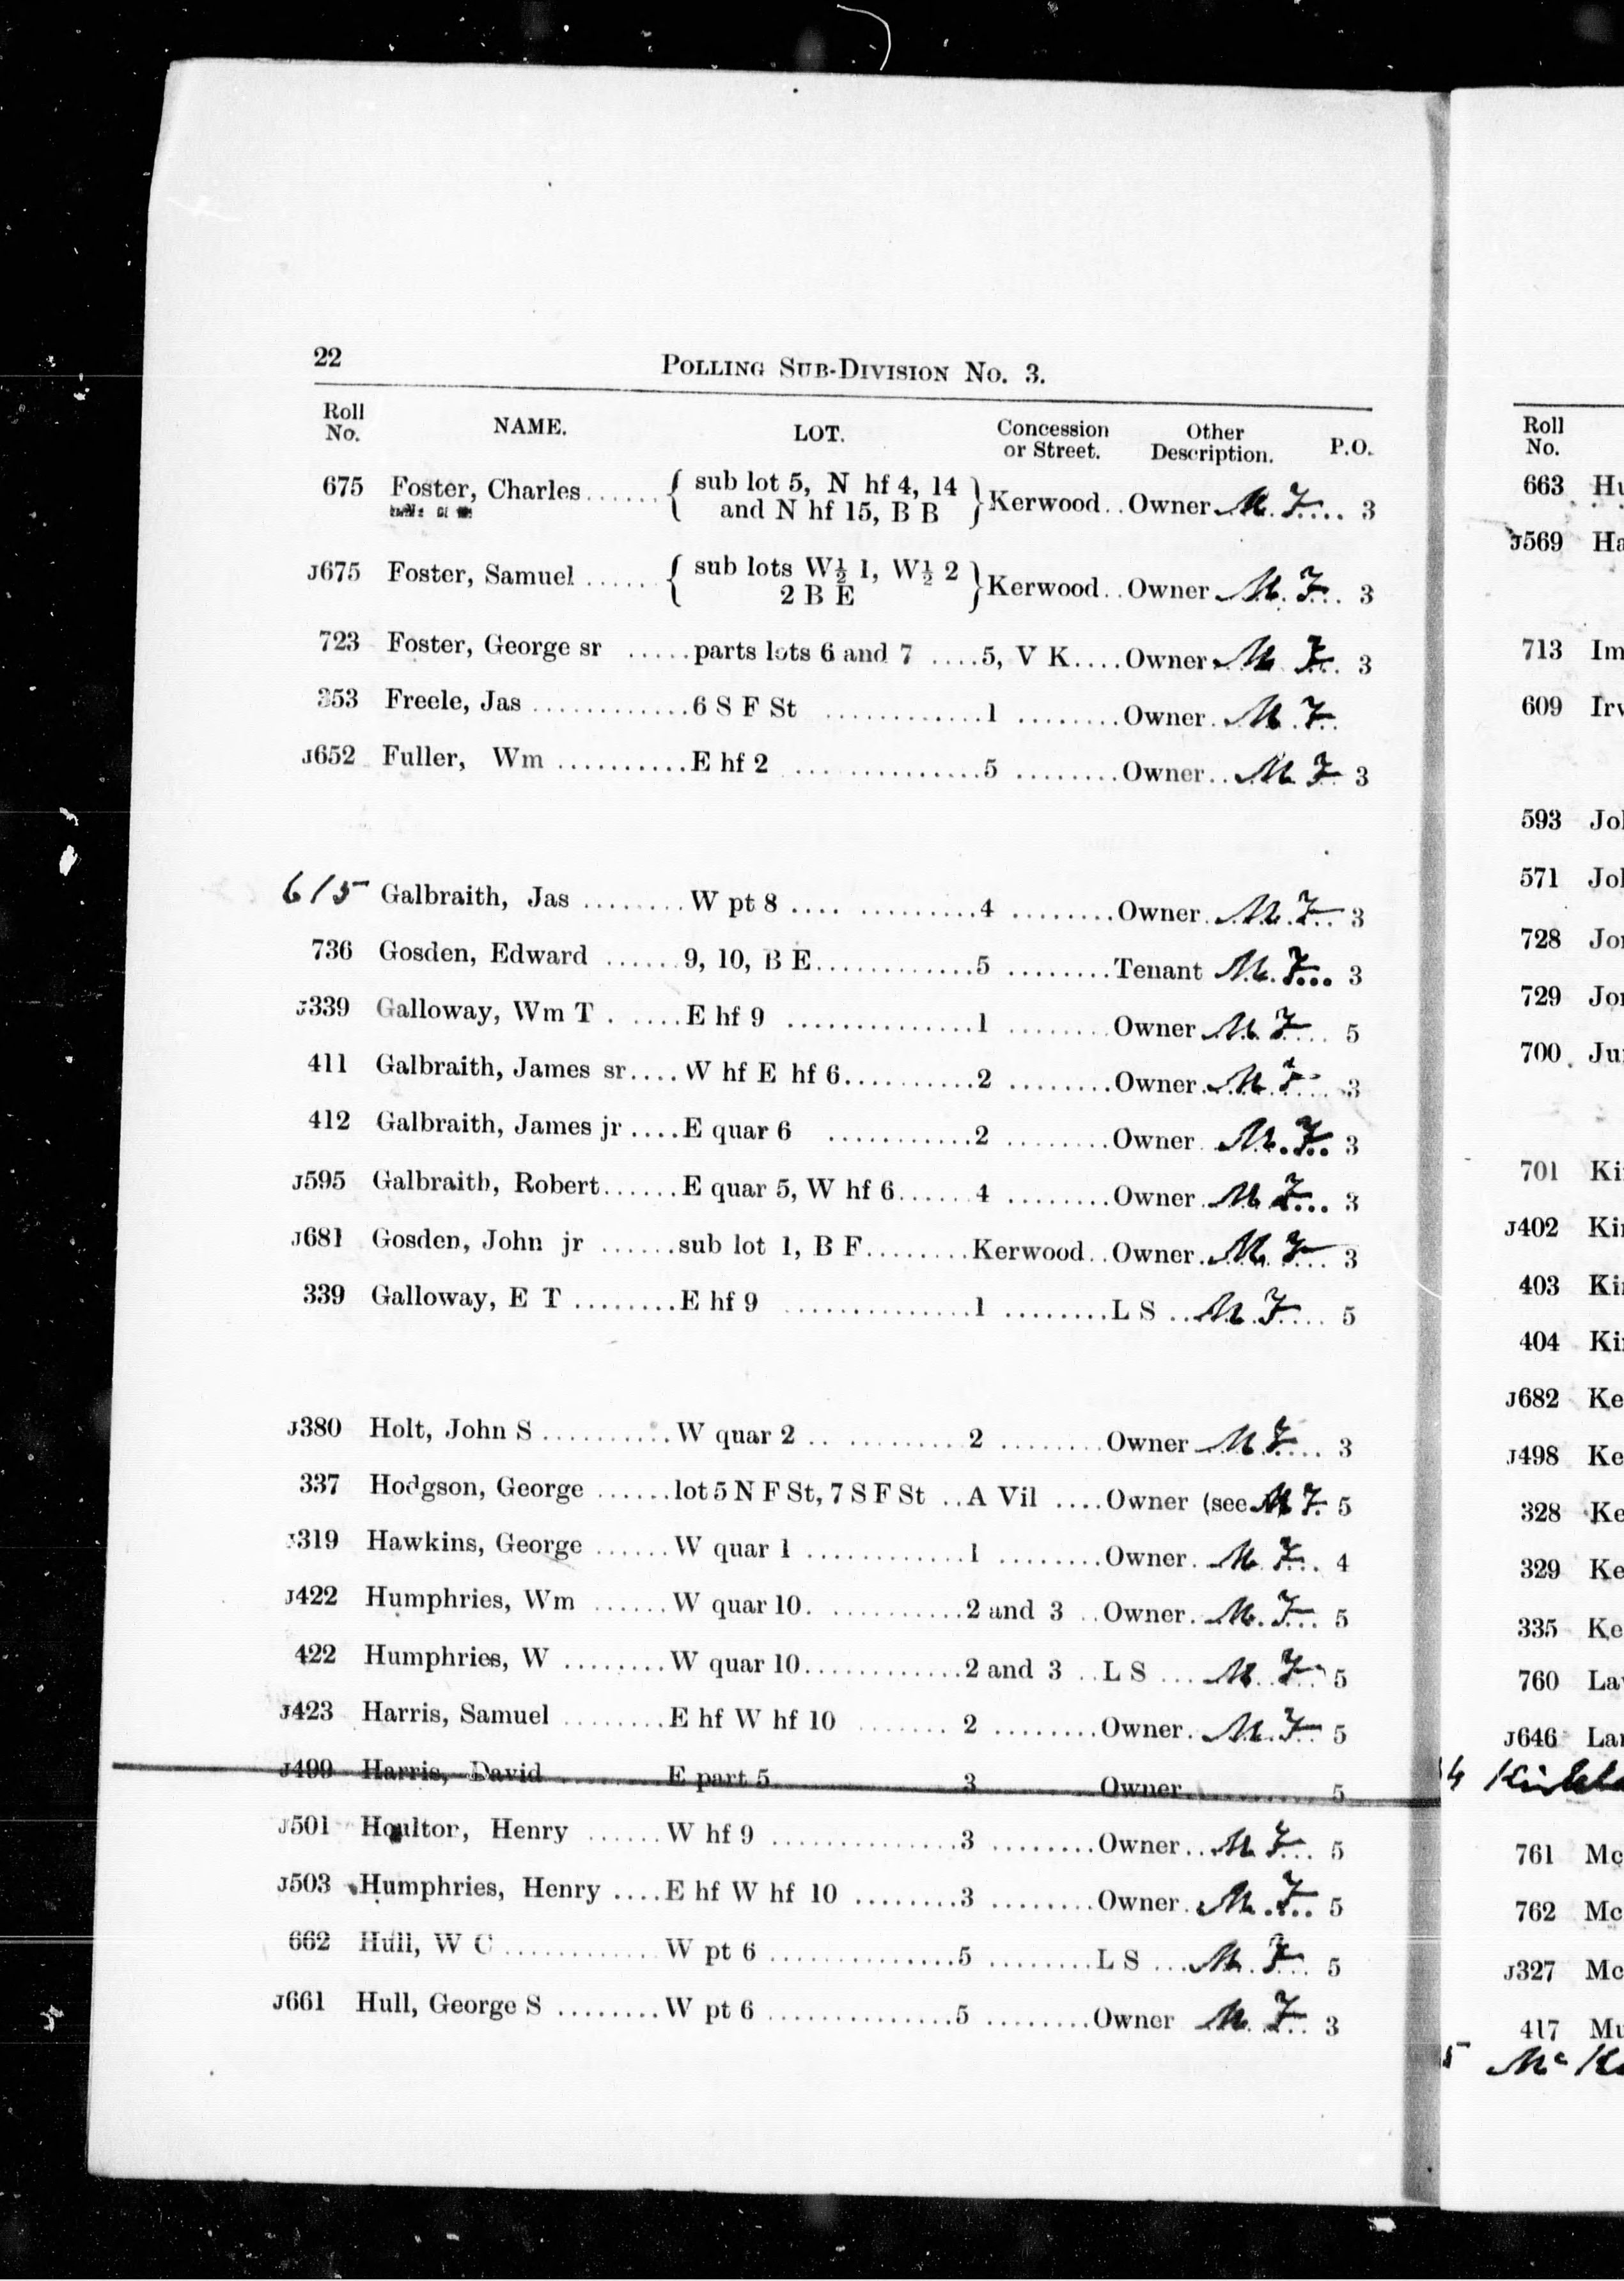 22 POLLING SUB-DIVISION No. 3.
Roll No. NAME. LOT. Concession or Street. Other Description. P.O.
675 Foster, Charles...... { sub lot 5, N hf 4, 14 and N hf 15, B B } Kerwood.. Owner M. F.... 3
J675 Foster, Samuel ...... { sub lots W½ 1, W½ 2 2 B E } Kerwood.. Owner M. F... 3
723 Foster, George sr .....parts lots 6 and 7 ....5, V K....Owner M F.. 3
353 Freele, Jas ............6 S F St ............1 ........Owner. M. F.
J652 Fuller, Wm ..........E hf 2 ..............5 ........Owner.. M F. 3
615 Galbraith, Jas ........W pt 8 .... .........4 ........Owner. M. F... 3
736 Gosden, Edward ......9, 10, B E............5 ........Tenant M. F... 3
J339 Galloway, Wm T . .....E hf 9 ..............1 ........Owner M. F.... 5
411 Galbraith, James sr....W hf E hf 6..........2 ........Owner. M. F.... 3
412 Galbraith, James jr ....E quar 6 ...........2 ........Owner. M. F... 3
J595 Galbraith, Robert......E quar 5, W hf 6......4 ........Owner. M. F... 3
J681 Gosden, John jr ......sub lot 1, B F........Kerwood..Owner. M. F... 3
339 Galloway, E T ........E hf 9 ..............1 ........L S .. M. F.... 5
J380 Holt, John S ..........W quar 2 .. .........2 ........Owner M F.... 3
337 Hodgson, George ......lot 5 N F St, 7 S F St ..A Vil ....Owner (see M F. 5
J319 Hawkins, George ......W quar 1 ............1 ........Owner. M. F... 4
J422 Humphries, Wm ......W quar 10. ..........2 and 3 ..Owner. M. F... 5
422 Humphries, W ........W quar 10............2 and 3 ..L S ... M. F.. 5
J423 Harris, Samuel ........E hf W hf 10 ....... 2 ........Owner. M. F.. 5
J499 Harris, David E part 5 3 Owner 5
J501 Houltor, Henry ......W hf 9 ..............3 ........Owner.. M F... 5
J503 Humphries, Henry ....E hf W hf 10 ........3 ........Owner. M. F... 5
662 Hull, W C ............W pt 6 ..............5 ........L S ... M. F... 5
J661 Hull, George S ........W pt 6 ..............5 ........Owner M. F... 3
Roll No.
663
J569
713
609
593
571
728
729
700
701
J402
403
404
J682
J498
328
329
335
760
J646
761
762
J327
417